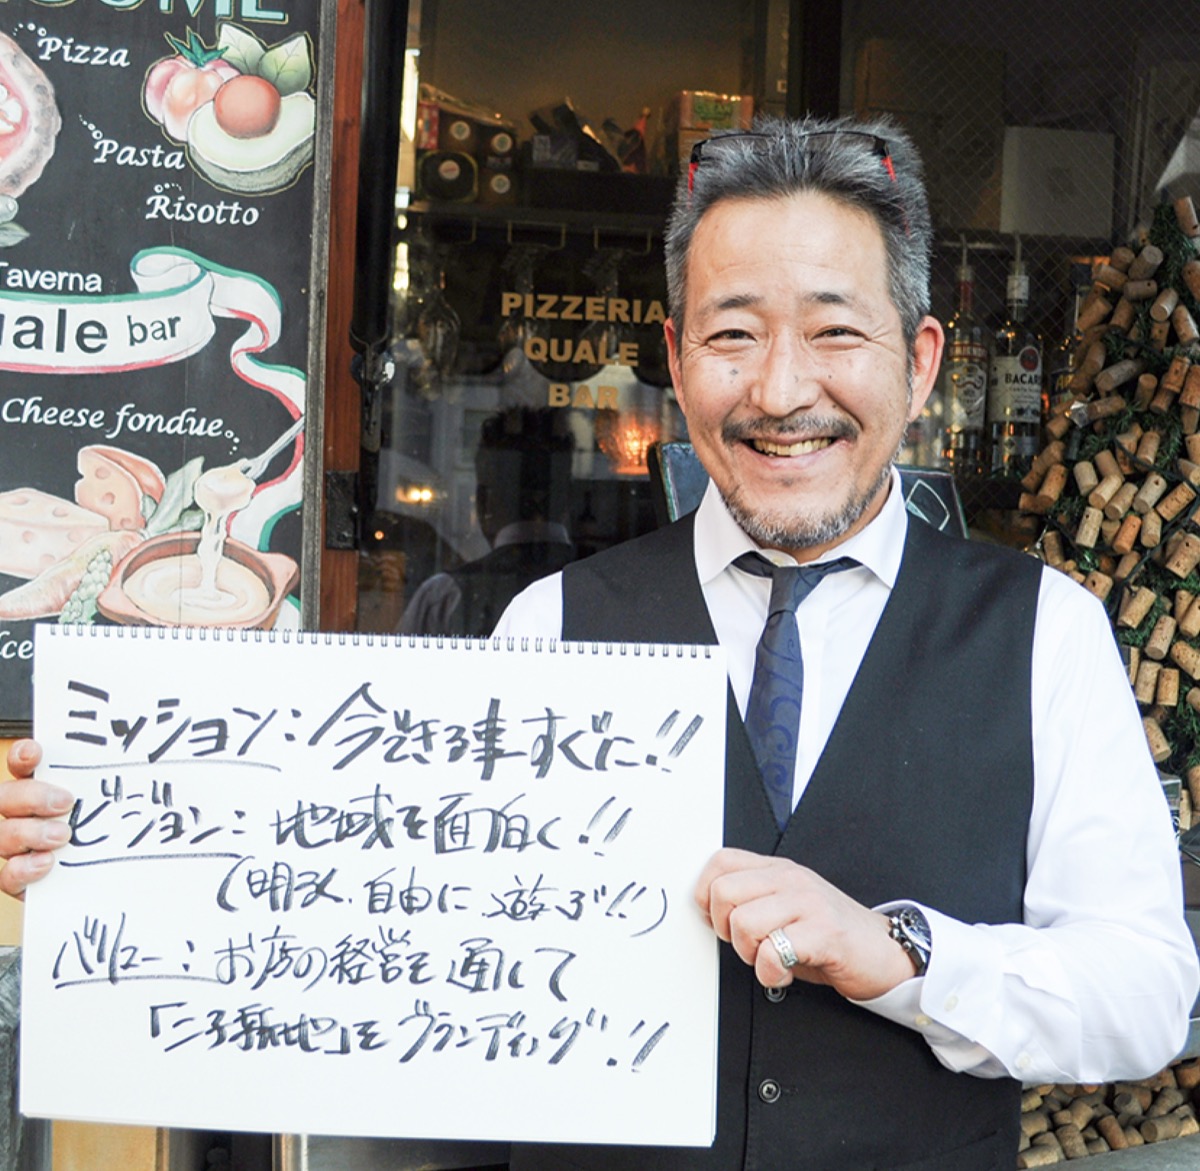 Pizza
Pasta
Risotto
Taverna
uale bar
Cheese fondue
PIZZERIA
QUALE
BAR
BACAR
ミッション：今できる事すぐに!!
ビジョン：地域を面白く!!
(明るく、自由に、遊ぶ!!)
バリュー：お店の経営を通して
「二子新地」をブランディング!!